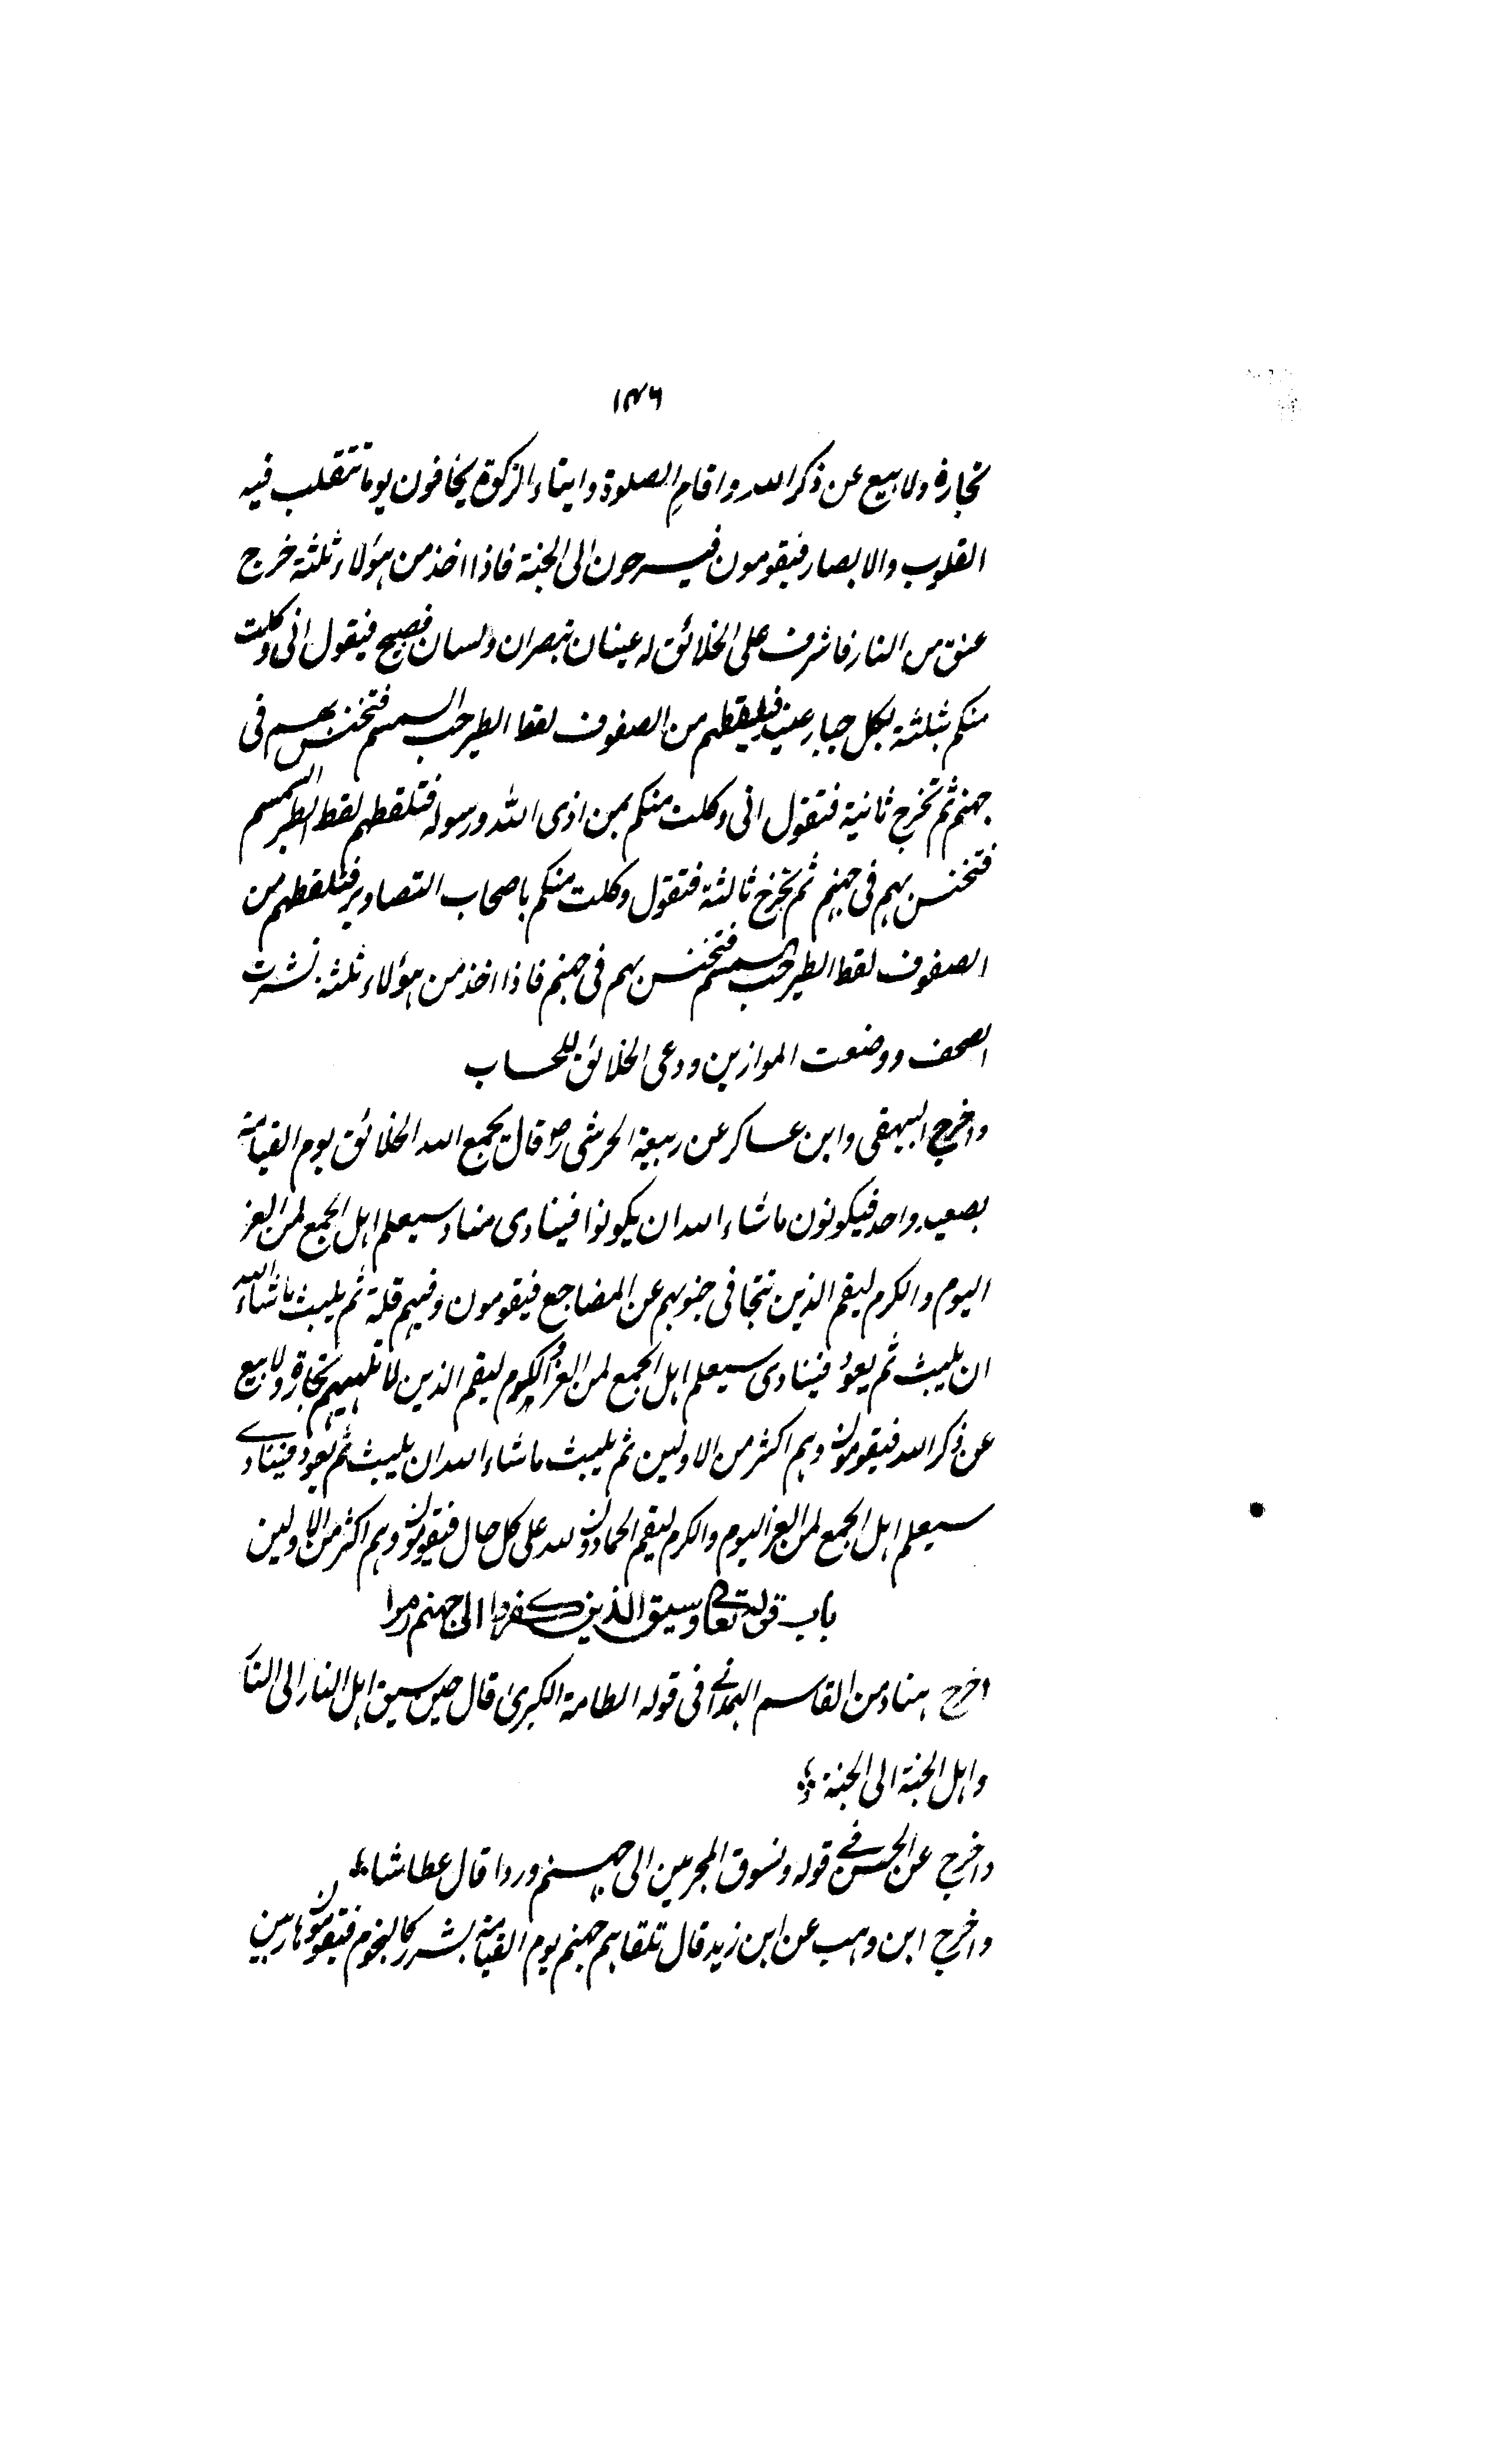 ۱۴۶
تجارة ولا بيع عن ذكر الله واقام الصلوة وايتاء الزكوة يخافون يوما تتقلب فيه
القلوب والابصار فيقومون فيسرحون الى الجنة فاذا اخذ من هؤلاء ثلثة خرج
عنق من النار فاشرف على الخلائق له عينان تبصران ولسان فصيح فيقول انى وكلت
منكم بثلثة بكل جبار عنيد فيلقطهم من الصفوف لقط الطير حب السمسم فتخنس بهم فى
جهنم ثم تخرج ثانية فتقول انى وكلت منكم بمن اذى الله ورسوله فتلقطهم لقط الطير السمسم
فتخنس بهم فى جهنم ثم تخرج ثالثة فتقول وكلت منكم باصحاب التصاوير فتلقطهم من
الصفوف لقط الطير حب السمسم فتخنس بهم فى جهنم فاذا اخذ من هؤلاء ثلثة نشرت
الصحف ووضعت الموازين ودعى الخلائق للحساب
واخرج البيهقى وابن عساكر عن ربيعة الحرشى رض قال يجمع الله الخلائق يوم القيامة
بصعيد واحد فيكونون ماشاء الله ان يكونوا فينادى مناد سيعلم اهل الجمع لمن العز
اليوم والكرم ليقم الذين تتجافى جنوبهم عن المضاجع فيقومون وفيهم قلة ثم يلبث ماشاء الله
ان يلبث ثم يعود فينادى سيعلم اهل الجمع لمن العز والكرم ليقم الذين لا تلهيهم تجارة ولا بيع
عن ذكر الله فيقومون وهم اكثر من الاولين ثم يلبث ماشاء الله ان يلبث ثم يعود فينادى
سيعلم اهل الجمع لمن العز اليوم والكرم ليقم الحمادون لله على كل حال فيقومون وهم اكثر من الاولين
باب قوله تعالى وسيق الذين كفروا الى جهنم زمرا
اخرج هناد من القاسم الهمدانى فى قوله الطامة الكبرى قال حين سيق اهل النار الى النا
واهل الجنة الى الجنة
واخرج عن الحسن فى قوله ونسوق المجرمين الى جهنم وردا قال عطاشاء
واخرج ابن وهب عن ابن زيد قال تلقاهم جهنم يوم القيامة بشرر كالنجوم فيقومون هاربين